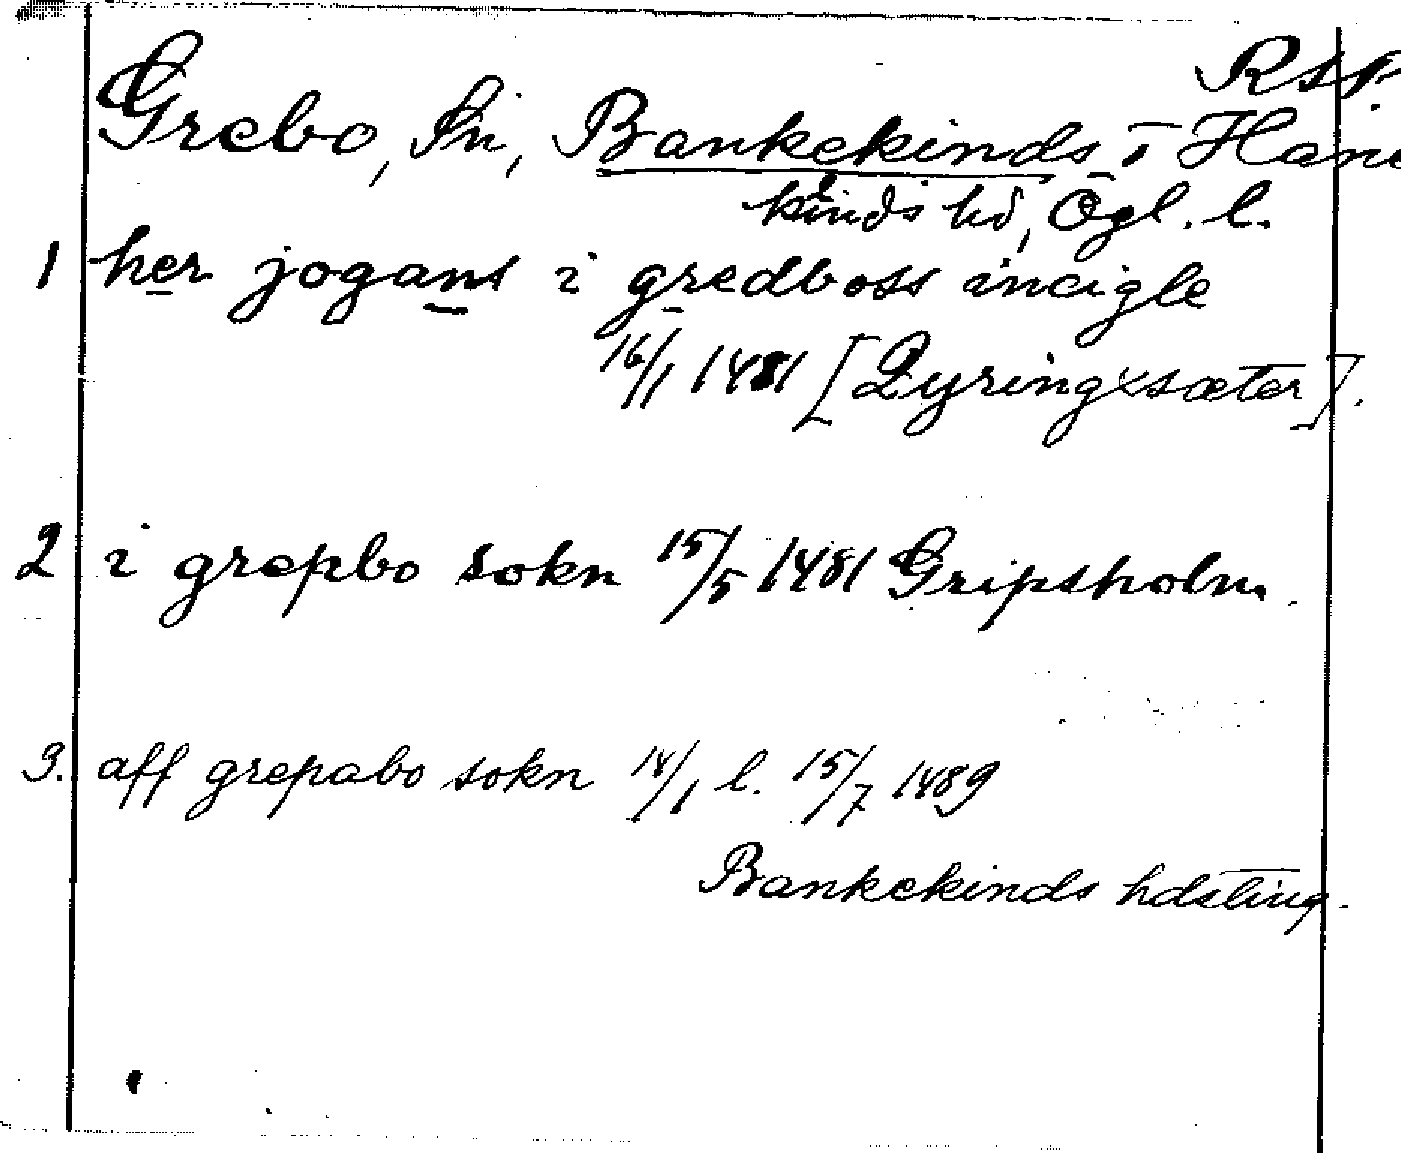 Rsp.
Grebo, Sn, Bankekinds, i Hane
kinds hd, Ögl. l.
1 her jogans i gredboss incigle
16/1 1481 [Lyringxsæter].
2 i grepbo sokn 15/5 1481 Gripsholm.
3. aff grepabo sokn 14/1 l. 15/7 1489
Bankekinds hdsting.